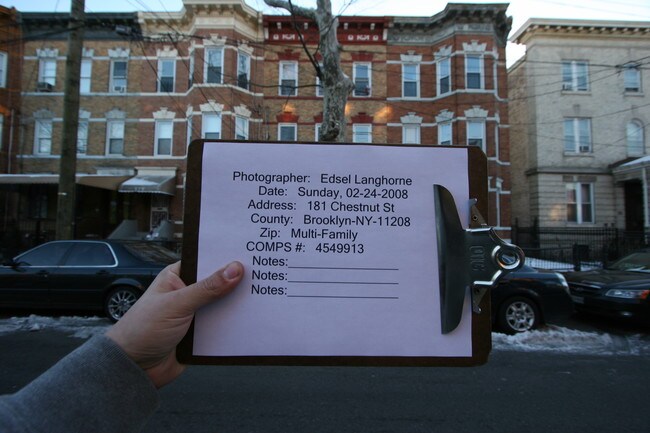 Photographer: Edsel Langhorne
Date: Sunday, 02-24-2008
Address: 181 Chestnut St
County: Brooklyn-NY-11208
Zip: Multi-Family
COMPS #: 4549913
Notes:
Notes:
Notes: